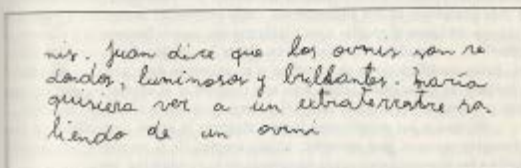 nis. Juan dice que los ovnis son re
dondos, luminosos y brillantes. María
quisiera ver a un extraterrestre sa
liendo de un ovni